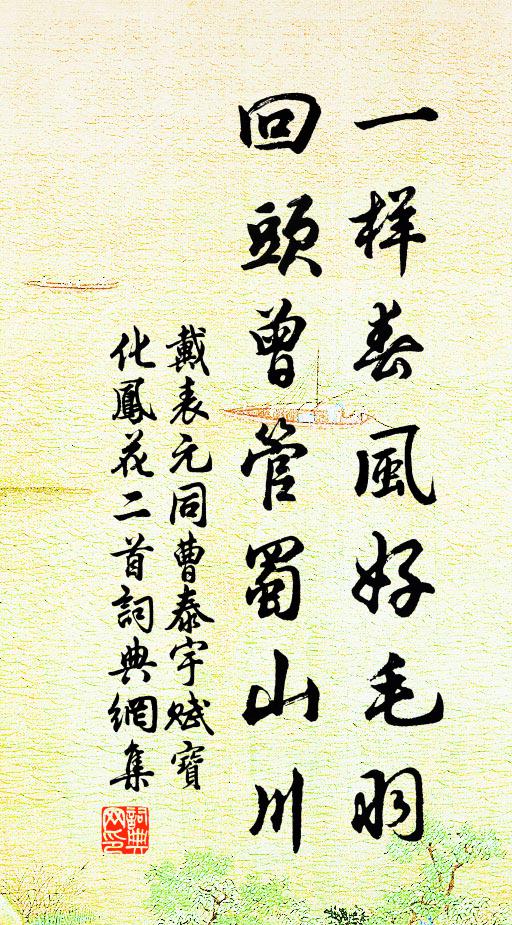 一样春風好毛羽
回頭曾管蜀山川
戴表元同曹泰宇赋寶
化鳳花二首詞典網集
詞典
网印